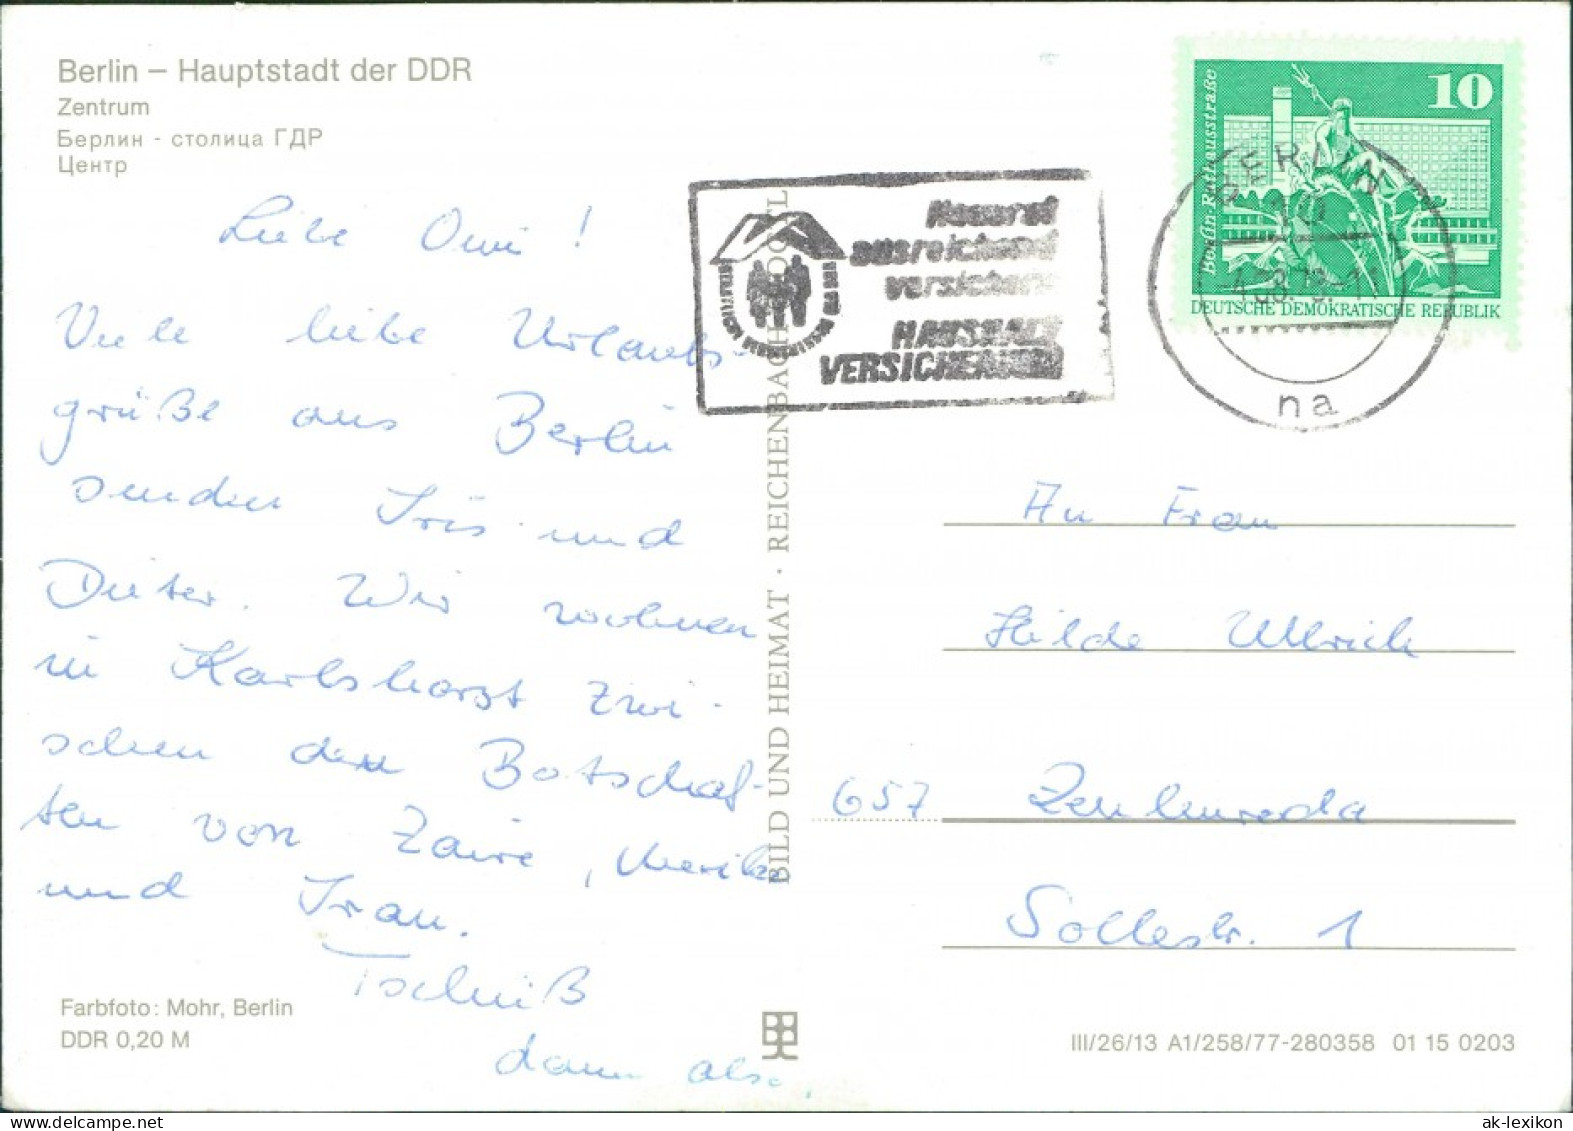 Berlin – Hauptstadt der DDR
Zentrum
Берлин - столица ГДР
Центр
Liebe Omi!
Viele liebe Urlaubs-
grüße aus Berlin
senden Iris und
Dieter. Wir wohnen
in Karlshorst zwi-
schen den Botschaf-
ten von Zaire,
und Iran.
Tschüß
dann also
Farbfoto: Mohr, Berlin
DDR 0,20 M
BILD UND HEIMAT · REICHENBACH
Neuwert
ausreichend
versichern
HAUSHALT
VERSICHERUNG
10
Berlin-Rathausstraße
DEUTSCHE DEMOKRATISCHE REPUBLIK
BERLIN
na
An Frau
Hilde Ullrich
657 Zeulenroda
Sollestr. 1
III/26/13 A1/258/77-280358 01 15 0203
ak-lexikon